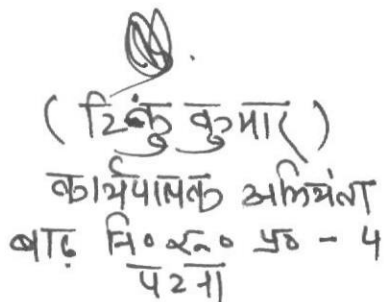 ( टिंकु कुमार )
कार्यपालक अभियंता
बाढ़ नि० प्र० - 4
पटना